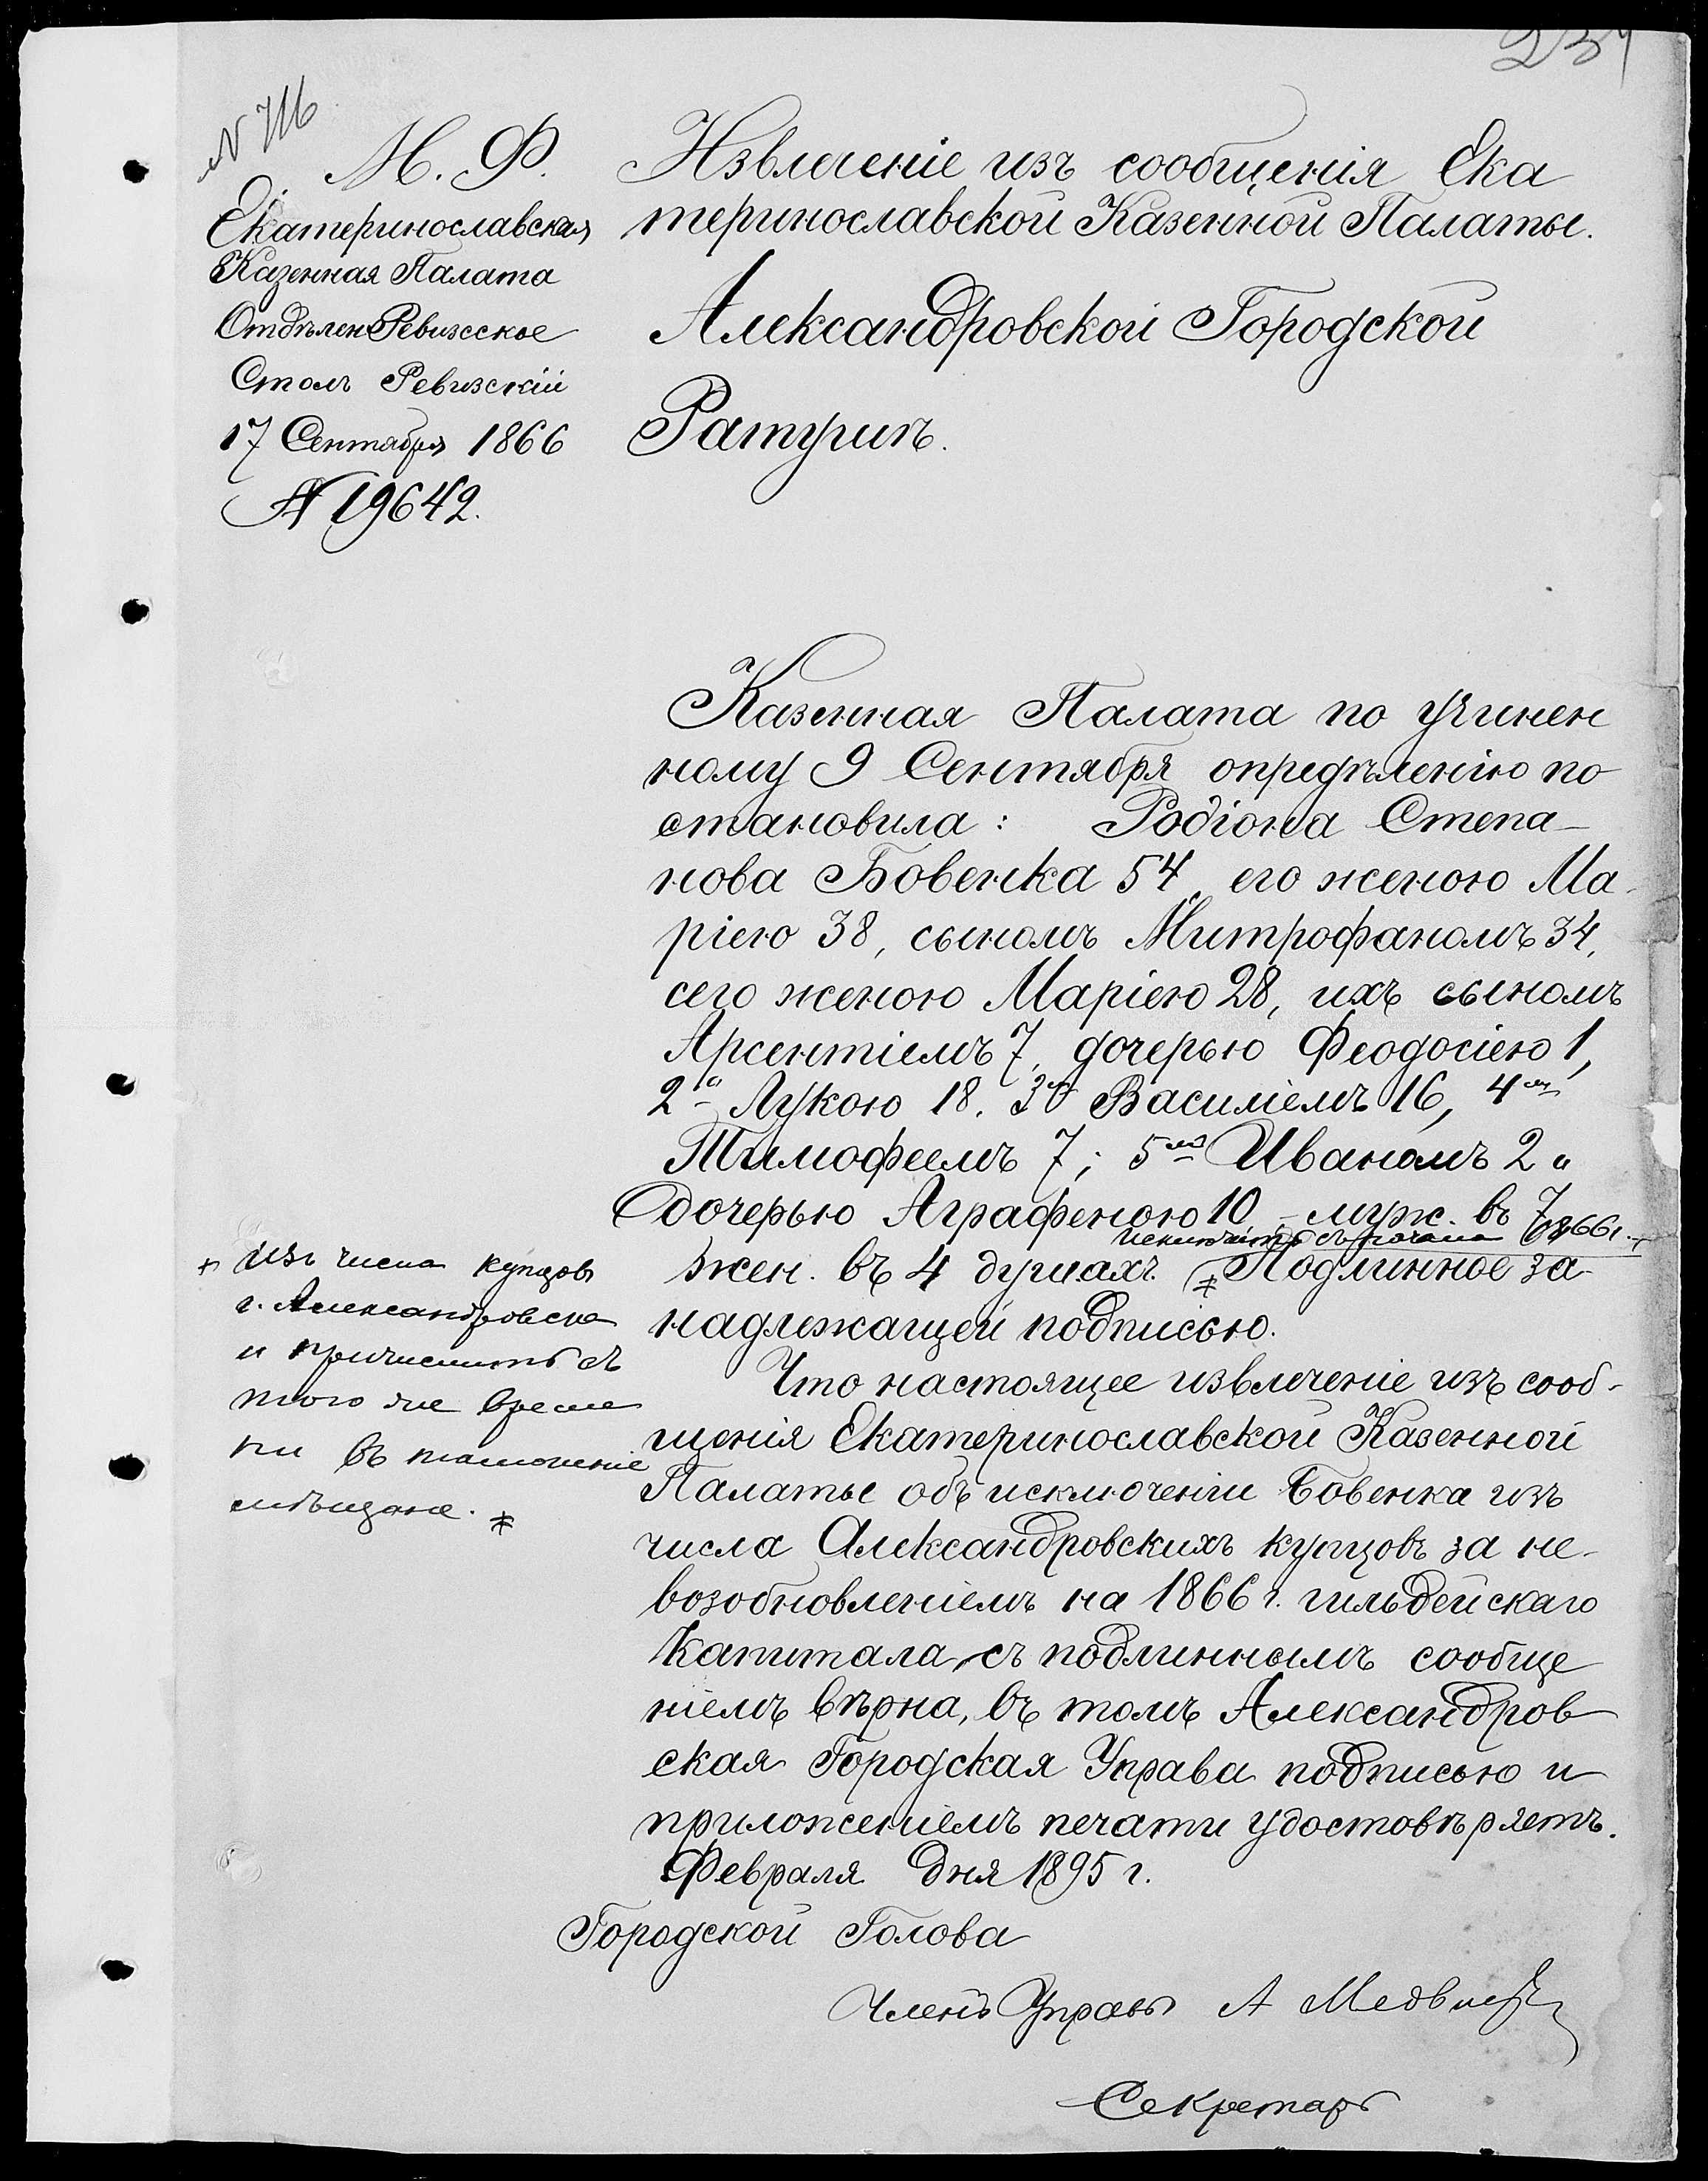 234
N 716
М. Ф.
Екатеринославская
Казенная Палата
Отдѣлен Ревизское
Столъ Ревизскій
17 Сентября 1866
N 19642.
Извлеченіе изъ сообщенія Ека
теринославской Казенной Палаты.
Александровской Городской
Ратушѣ.
Казенная Палата по учинен
ному 9 Сентября опредѣленію по
становила: Родіона Степа-
нова Бовенка 54, его женою Ма-
ріею 38, сыномъ Митрофаномъ 34,
сего женою Маріею 28, ихъ сыномъ
Арсентіемъ 7, дочерью Феодосіею 1,
2й Лукою 18. 3й Василіемъ 16, 4мъ
Тимофеемъ 7; 5мъ Иваномъ 2 и
дочерью Аграфеною 10, - муж. въ 7
исключить съ начала 1866 г. +
жен. въ 4 душахъ. * Подлинное за
надлежащей подписью.
+ изъ числа купцовъ
г. Александровска
и причислить съ
того же време
ни въ тамошніе
мѣщане. *
Что настоящее извлеченіе изъ сооб-
щенія Екатеринославской Казенной
Палаты объ исключеніи Бовенка изъ
числа Александровскихъ купцовъ за не-
возобновленіемъ на 1866 г. гильдейскаго
капитала, съ подлиннымъ сообще
ніемъ вѣрна, въ томъ Александров
ская Городская Управа подписью и
приложеніемъ печати удостовѣряетъ.
Февраля дня 1895 г.
Городской Голова
Членъ Управы А
Секретарь